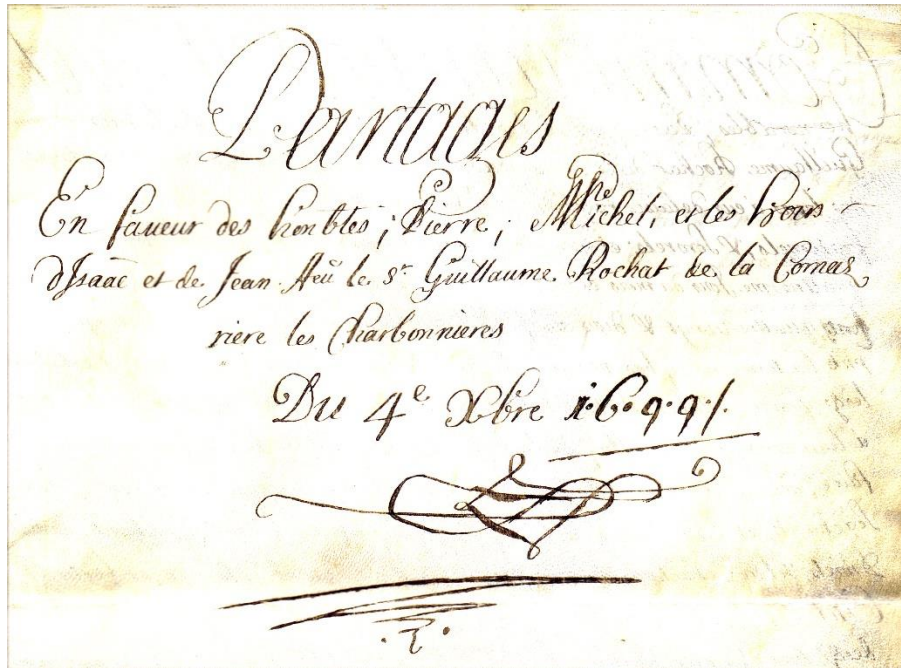 Partages
En faueur des honbles, Pierre, Michel, et les hoirs
d'Isaac et de Jean feu le Sr Guillaume Rochat de la Cornaz
riere les Charbonnieres
Du 4e Xbre 1699